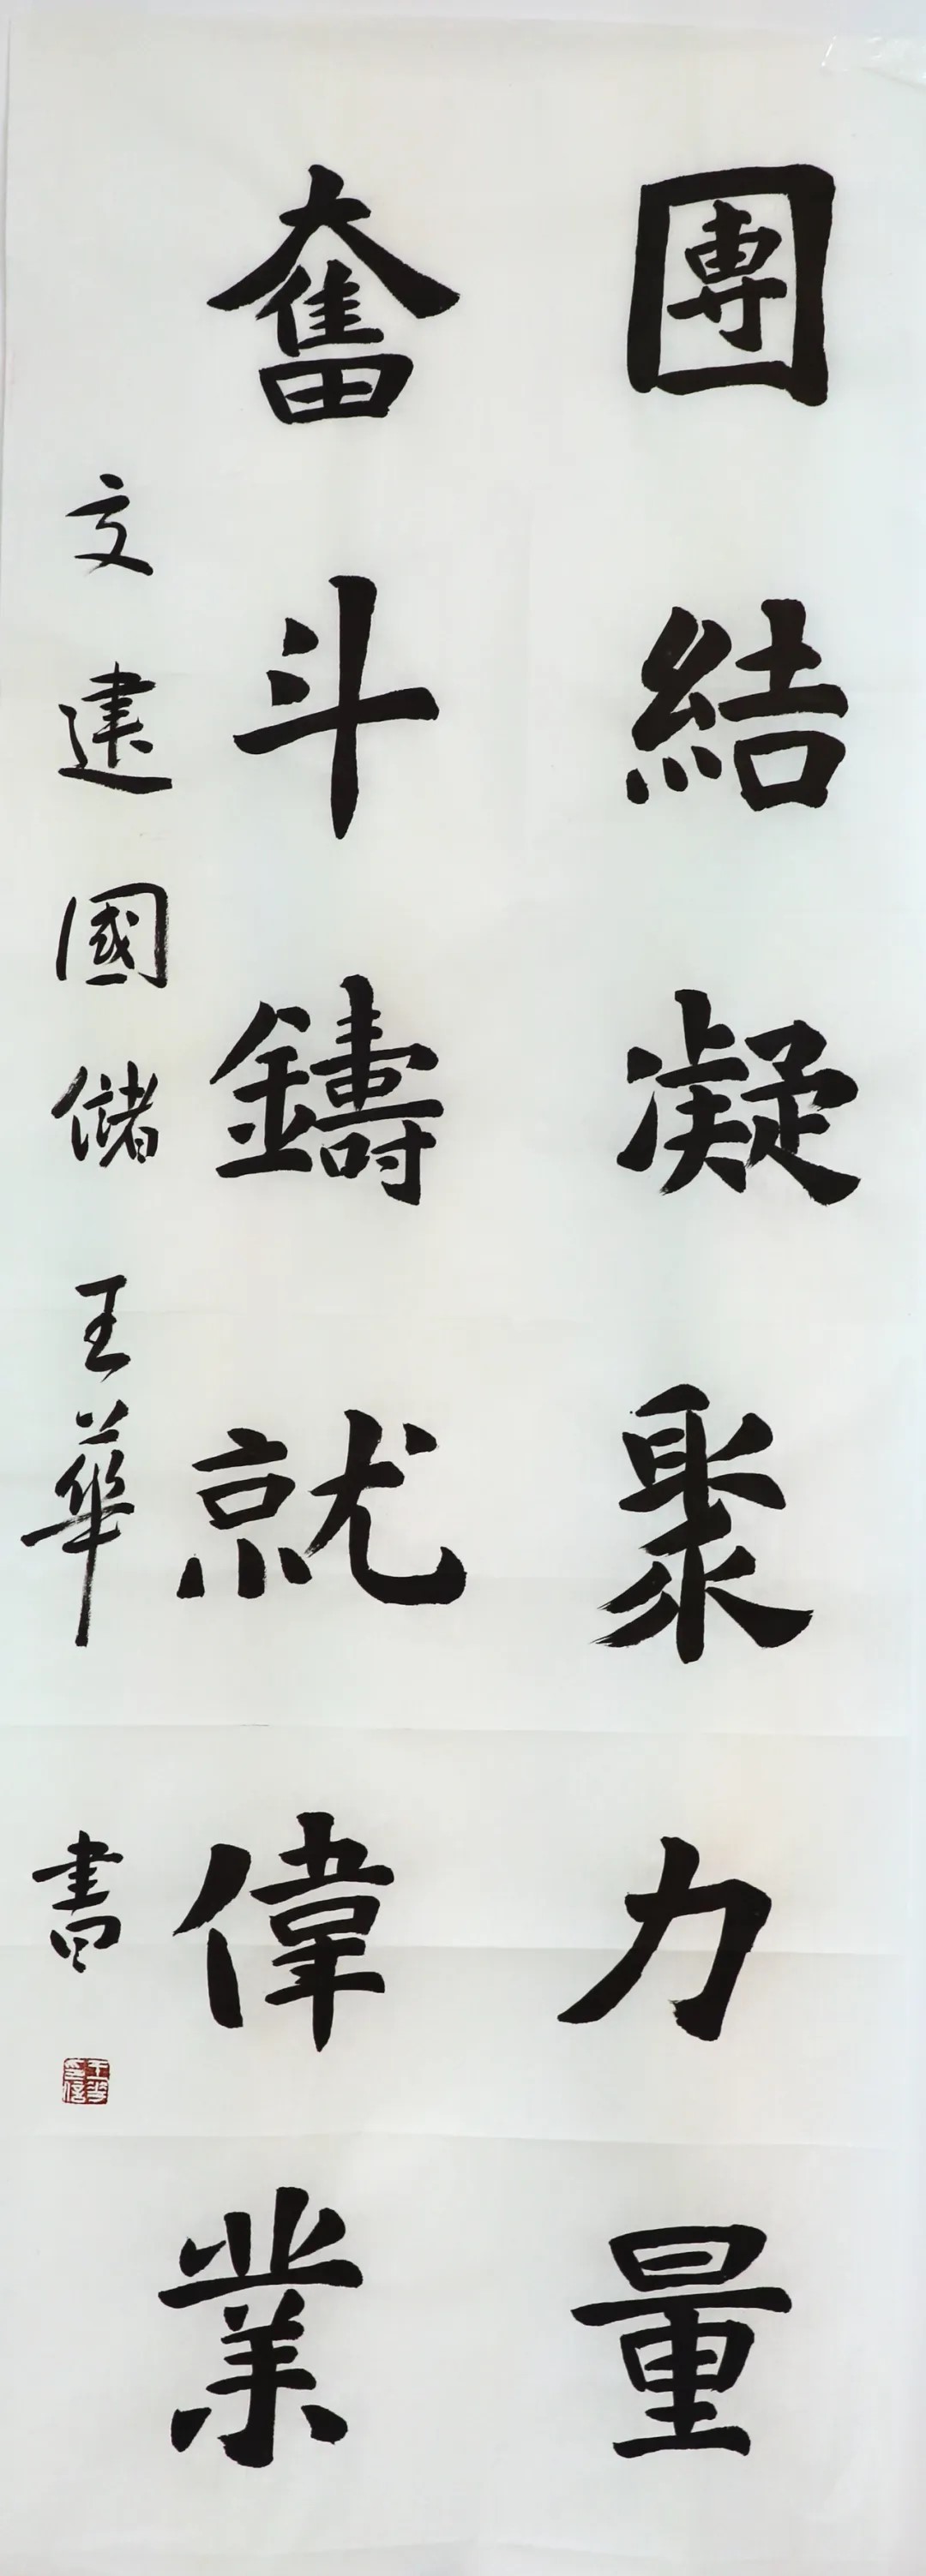 團結凝聚力量
奮斗鑄就偉業
文建國儲王華書